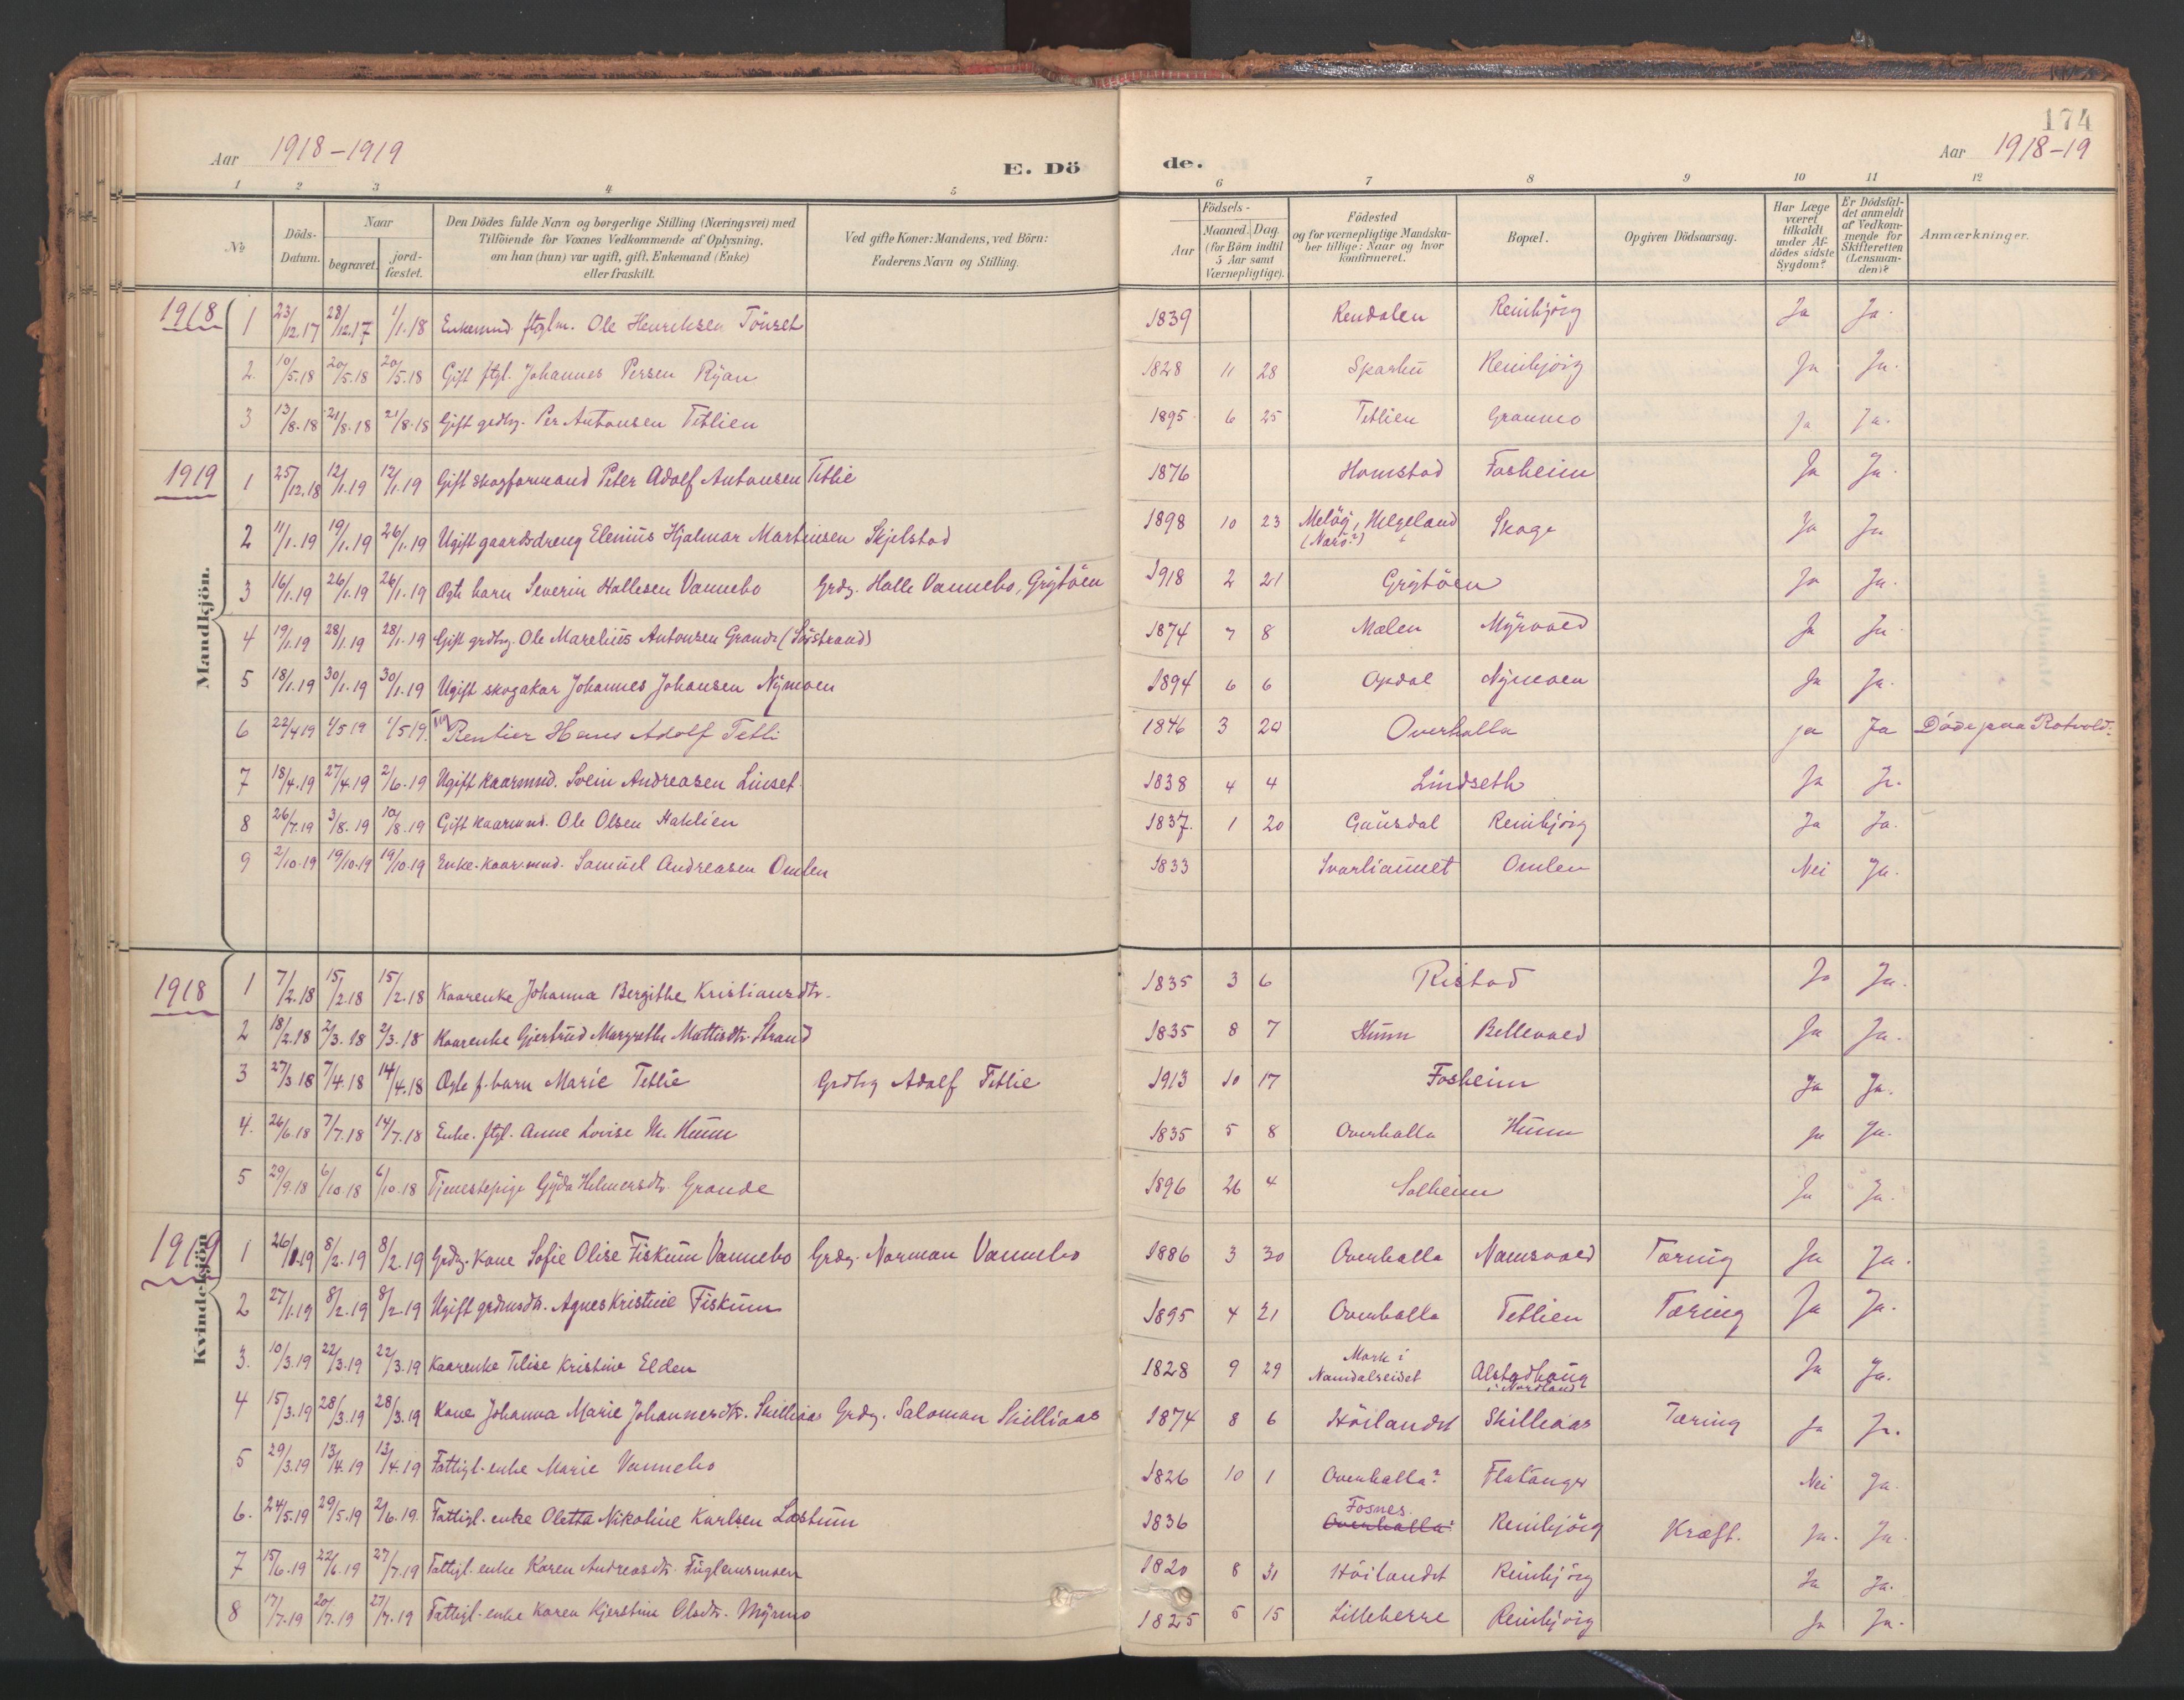 174
Aar 1918-1919
E. Dö
de.
Aar 1918-19
1 2 3 4 5
6 7 8 9 10 11 12
No
Döds-Datum.
Naar
begravet.
jord-fæstet.
Den Dödes fulde Navn og borgerlige Stilling (Næringsvei) med
Tilföiende for Voxnes Vedkommende af Oplysning,
om han (hun) var ugift, gift, Enkemand (Enke)
eller fraskilt.
Ved gifte Koner: Mandens, ved Börn:
Faderens Navn og Stilling.
Födsels-
Aar
Maaned. Dag
(for Börn indtil
5 Aar samt
Værnepligtige).
Födested
og for værnepligtige Mandska-
ber tillige: Naar og hvor
konfirmeret.
Bopæl.
Opgiven Dödsaarsag.
Har Læge
været
tilkaldt
under Af-
dödes sidste
Sygdom?
Er Dödsfal-
det anmeldt
af Vedkom-
mende for
Skifteretten
(Lensman-
den)?
Anmærkninger.
Mandkjön.
1918
1 23/12.17 28/12.17 1/1.18 Enkemnd ftglm. Ole Henriksen Tönset 1839 Rendalen Reinbjörg Ja Ja.
2. 10/5.18 20/5.18 20/5.18 Gift ftgl. Johannes Persen Ryan 1828 11 28 Sparbu Reinbjörg Ja Ja.
3 13/8.18 21/8.18 21/8.18 Gift grdbr. Per Antonsen Tetlien 1895 6 25 Tetlien Granmo Ja Ja.
1919
1 25/12.18 12/1.19 12/1.19 Gift skogformand Peter Adolf Antonsen Tetlie 1876 Homstad Fosheim Ja Ja.
2 11/1.19 19/1.19 26/1.19 Ugift gaardsdreng Elenius Hjalmar Martinsen Skjelstad 1898 10 23 Melöy, Helgeland (Narö?) Skage Ja Ja
3 16/1.19 26/1.19 26/1.19 Ægte barn Severin Hallesen Vannebo Grdbr. Halle Vannebo, Grytöen 1918 2 21 Grytöen Ja Ja.
4 19/1.19 28/1.19 28/1.19 Gift grdbr. Ole Marelius Antonsen Grande (Sörstrand) 1874 7 8 Mælen Myrvold Ja Ja
5 18/1.19 30/1.19 30/1.19 Ugift skogakar Johannes Johansen Nymoen 1894 6 6 Opdal Nymoen Ja Ja.
6 22/4 19 1/5 19 1/5 19. Ug Rentier Hans Adolf Tetli 1846 3 20 Overhalla ja Ja Döde paa Rotvold.
7 18/4.19 27/4.19 2/6.19 Ugift kaarmnd. Svein Andreasen Linset 1838 4 4 Lindseth Ja Ja.
8 26/7.19 3/8.19 10/8.19 Gift kaarmnd. Ole Olsen Haklien 1837. 1 20 Gausdal Reinbjörg Ja Ja.
9 2/10.19 19/10.19 19/10.19 Enke-kaarmnd. Samuel Andreasen Omlen 1833 Svartiamoet Omlen Nei Ja.
Kvindekjön
1918
1 7/2.18 15/2.18 15/2.18 Kaarenke Johanna Bergithe Kristiansdtr. 1835 3 6 Ristad Ja Ja.
2 18/2.18 2/3.18 2/3.18 Kaarenke Gjertrud Margrethe Mattisdtr. Strand 1835 8 7 Hunn Bellevold Ja Ja.
3 27/3.18 7/4.18 14/4.18 Ægte f. barn Marie Tetlie Grdbr Adolf Tetlie 1913 10 17 Fosheim Ja Ja.
4. 26/6.18 7/7.18 14/7.18 Enke. ftgl. Anne Lovise M. Hunn 1835 5 8 Overhalla Hunn ja Ja.
5 29/9.18 6/10.18 6/10.18 Tjenestepige Gyda Helmersdtr. Grande 1896 26 4 Solheim Ja Ja.
1919
1 26/1.19 8/2.19 8/2.19 Grdbr. Kone Sofie Olise Fiskum Vannebo Grdbr. Norman Vannebo 1886 3 30 Overhalla Namsvold Tæring Ja Ja.
2 27/1.19 8/2.19 8/2.19 Ugift grdmsdtr. Agnes Kristine Fiskum 1895 4 21 Overhalla Tetlien Tæring Ja Ja.
3. 10/3.19 22/3.19 22/3.19 Kaarenke Telise Kristine Elden 1828 9 29 Mork i Namdalseidet Alstadhaug i Nordland Ja Ja.
4 15/3.19 28/3.19 28/3.19 Kone Johanna Marie Johannesdtr. Skilliaas Grdbr. Saloman Skilliaas 1874 8 6 Höilandet Skilleaas Tæring Ja Ja.
5 29/3.19 13/4.19 13/4.19 Fattigl. enke Marie Vannebo 1826 10 1 Overhalla? Flatanger Nei Ja.
6. 24/5.19 29/5.19 2/6.19. Fattigl. enke Oletta Nikoline Karlsen Lastum 1836 Fosnes. Overhalla? Reinbjörg Kræft. Ja. Ja.
7 15/6.19 22/6.19 27/7.19 Fattigl. enke Karen Andreasdtr. Fuglemsmoen 1820 8 31 Höilandet Reinbjörg Ja Ja.
8 17/7.19 20/7.19 27/7.19 Fattigl. enke Karen Kjerstine Olsdtr. Myrmo 1825 5 15 Lilleherre Reinbjörg Ja Ja.